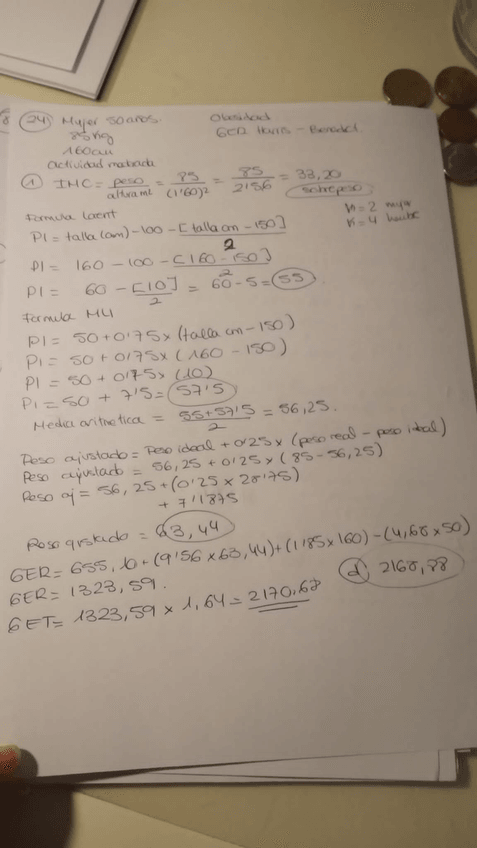 24) Mujer 50 años. Obesidad
85 kg GER Harris - Benedict
160 cm
actividad moderada
① IMC = peso / altura m² = 85 / (1'60)² = 85 / 2'56 = 33,20
sobrepeso
Formula Lorent K=2 mujer
PI = talla (cm) - 100 - [talla cm - 150] / 2 K=4 hombre
PI = 160 - 100 - [160 - 150] / 2
PI = 60 - [10] / 2 = 60 - 5 = 55
Formula MLI
PI = 50 + 0'75 x (talla cm - 150)
PI = 50 + 0'75 x (160 - 150)
PI = 50 + 0'75 x (10)
PI = 50 + 7'5 = 57'5
Media aritmetica = 55 + 57'5 / 2 = 56,25.
Peso ajustado = Peso ideal + 0'25 x (peso real - peso ideal)
Peso ajustado = 56,25 + 0'25 x (85 - 56,25)
Peso aj = 56,25 + (0'25 x 28'75)
+ 7'1875
Peso ajustado = 63,44
GER = 655,10 + (9'56 x 63,44) + (1'85 x 160) - (4,68 x 50)
GER = 1323,59.
GET = 1323,59 x 1,64 = 2170,68 d) 2168,88